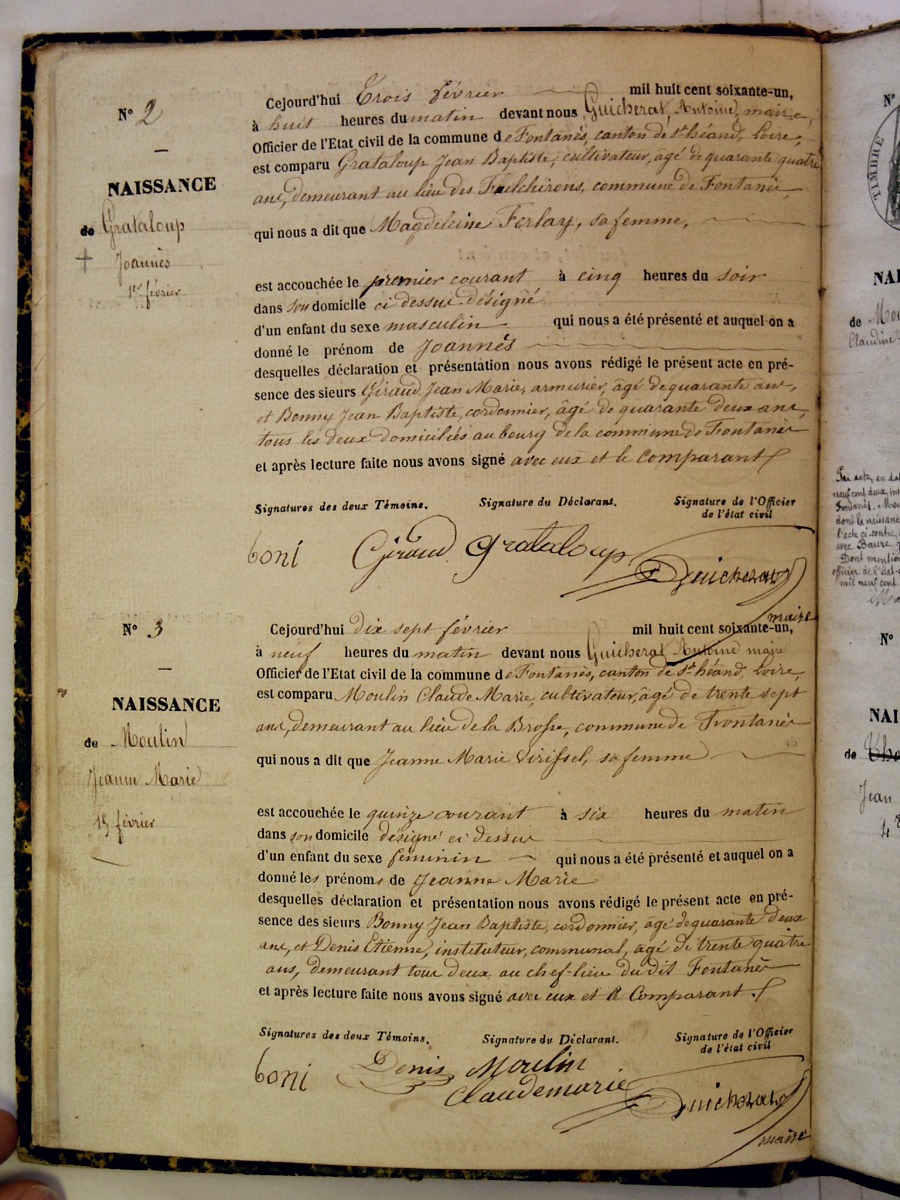 N° 2
NAISSANCE
de Grataloup
Joannès
1er février
Cejourd'hui Trois février mil huit cent soixante-un,
à huit heures du matin devant nous Guicherat, Antoine, maire,
Officier de l'Etat civil de la commune de Fontanès, canton de St héand, Loire,
est comparu Grataloup Jean Baptiste, cultivateur, âgé de quarante quatre
ans, demeurant au lieu des Fulchirons, commune de Fontanès
qui nous a dit que Magdeleine Ferlay, sa femme,
est accouchée le premier courant à cinq heures du soir
dans son domicile ci dessus désigné
d'un enfant du sexe masculin qui nous a été présenté et auquel on a
donné le prénom de Joannès
desquelles déclaration et présentation nous avons rédigé le présent acte en pré-
sence des sieurs Giraud, Jean Marie, armurier, âgé de quarante ans,
et Bonny Jean Baptiste, cordonnier, âgé de quarante deux ans,
tous les deux domiciliés au bourg de la commune de Fontanès
et après lecture faite nous avons signé avec eux et le Comparant
Signatures des deux Témoins. Signature du Déclarant. Signature de l'Officier
de l'état civil
boni Giraud grataloup Guicherat
maire
N° 3
NAISSANCE
de Moulin
Jeanne Marie
15 février
Cejourd'hui dix sept février mil huit cent soixante-un,
à neuf heures du matin devant nous Guicherat, Antoine maire
Officier de l'Etat civil de la commune de Fontanès, canton de St héand, Loire,
est comparu Moulin Claude Marie, cultivateur, âgé de trente sept
ans, demeurant au lieu de la Brosse, commune de Frontanès
qui nous a dit que Jeanne Marie Virissel, sa femme
est accouchée le quinze courant à six heures du matin
dans son domicile désigné ci dessus
d'un enfant du sexe féminin qui nous a été présenté et auquel on a
donné les prénoms de Jeanne Marie
desquelles déclaration et présentation nous avons rédigé le présent acte en pré-
sence des sieurs Bonny Jean Baptiste, cordonnier, âgé de quarante deux
ans, et Denis Etienne, instituteur, communal, âgé de trente quatre
ans, demeurant tous deux au chef-lieu du dit Fontanès
et après lecture faite nous avons signé avec eux et le Comparant.
Signatures des deux Témoins. Signature du Déclarant. Signature de l'Officier
de l'état civil
boni Denis Moulin
Claudemarie Guicherat
maire
TIMBRE
N°
NAI
de Mou
Claudine
N°
NAI
de
Jean